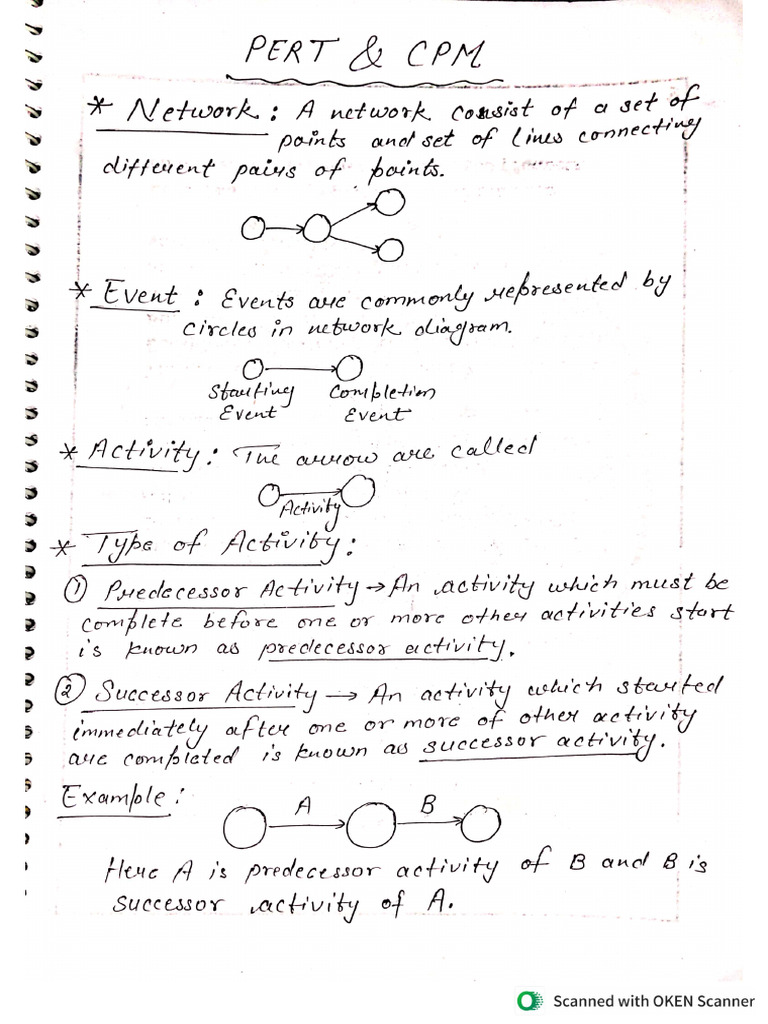 PERT & CPM
* Network : A network consist of a set of
points and set of lines connecting
different pairs of points.
* Event : Events are commonly represented by
circles in network diagram.
Starting Completion
Event Event
* Activity : The arrow are called
Activity
* Type of Activity :
① Predecessor Activity → An activity which must be
complete before one or more other activities start
is known as predecessor activity.
② Successor Activity → An activity which started
immediately after one or more of other activity
are completed is known as successor activity.
Example :
A B
Here A is predecessor activity of B and B is
successor activity of A.
Scanned with OKEN Scanner